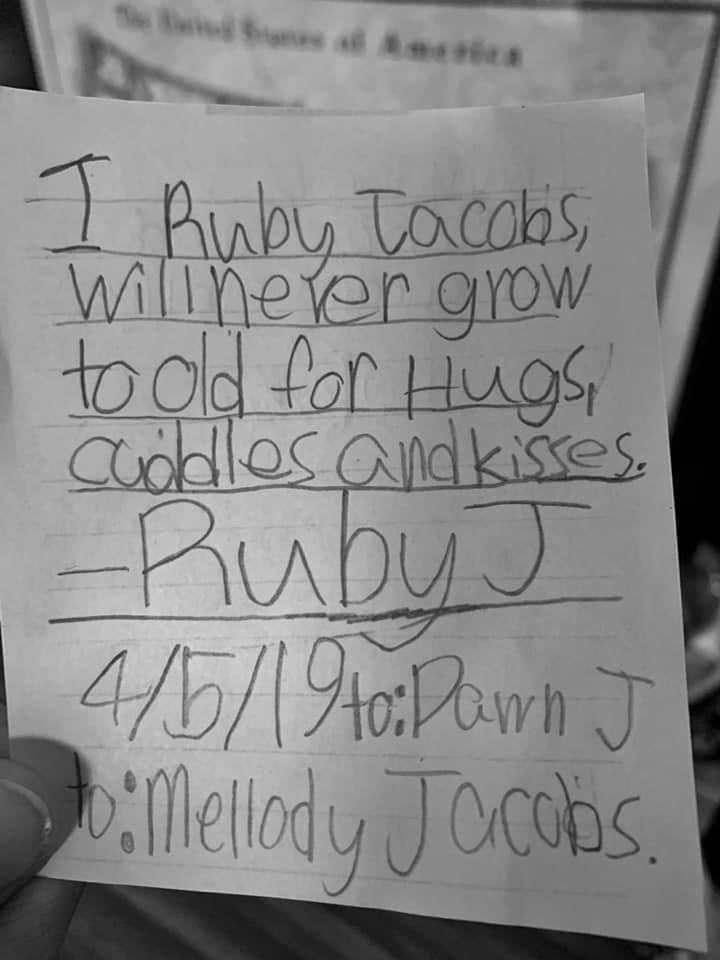 The United States of America
I Ruby Jacobs,
will never grow
to old for Hugs,
cuddles and kisses.
- Ruby J
4/5/19 to: Dawn J
to: Mellody Jacobs.